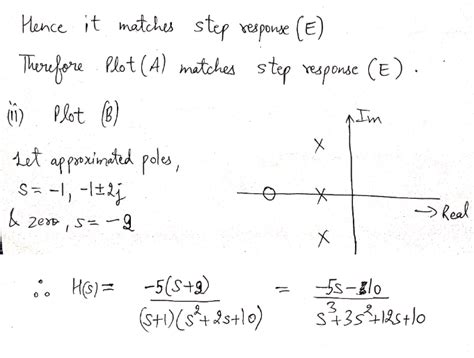 Hence it matches step response (E)
Therefore Plot (A) matches step response (E).
(ii) Plot (B)
Im
Let approximated poles,
s = -1, -1±2j
& zero, s = -2
Real
∴ H(s) = -5(s+2) / (s+1)(s²+2s+10) = -5s-10 / s³+3s²+12s+10